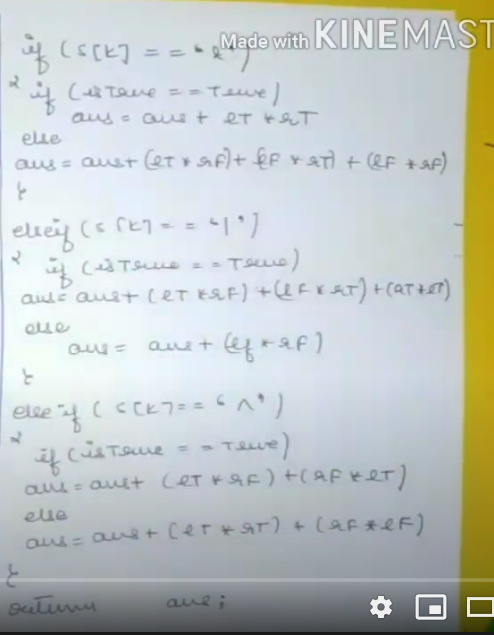 Made with KINEMAST
if (s[k] == '&')
{ if (isTrue == True)
ans = ans + lT * rT
else
ans = ans + (lT * rF) + (lF * rT) + (lF * rF)
}
elseif (s[k] == '|')
{ if (isTrue == True)
ans = ans + (lT * rF) + (lF * rT) + (rT * lT)
else
ans = ans + (lf * rF)
}
else if (s[k] == '^')
{
if (isTrue == True)
ans = ans + (lT * rF) + (rF * lT)
else
ans = ans + (lT * rT) + (rF * lF)
}
return ans;